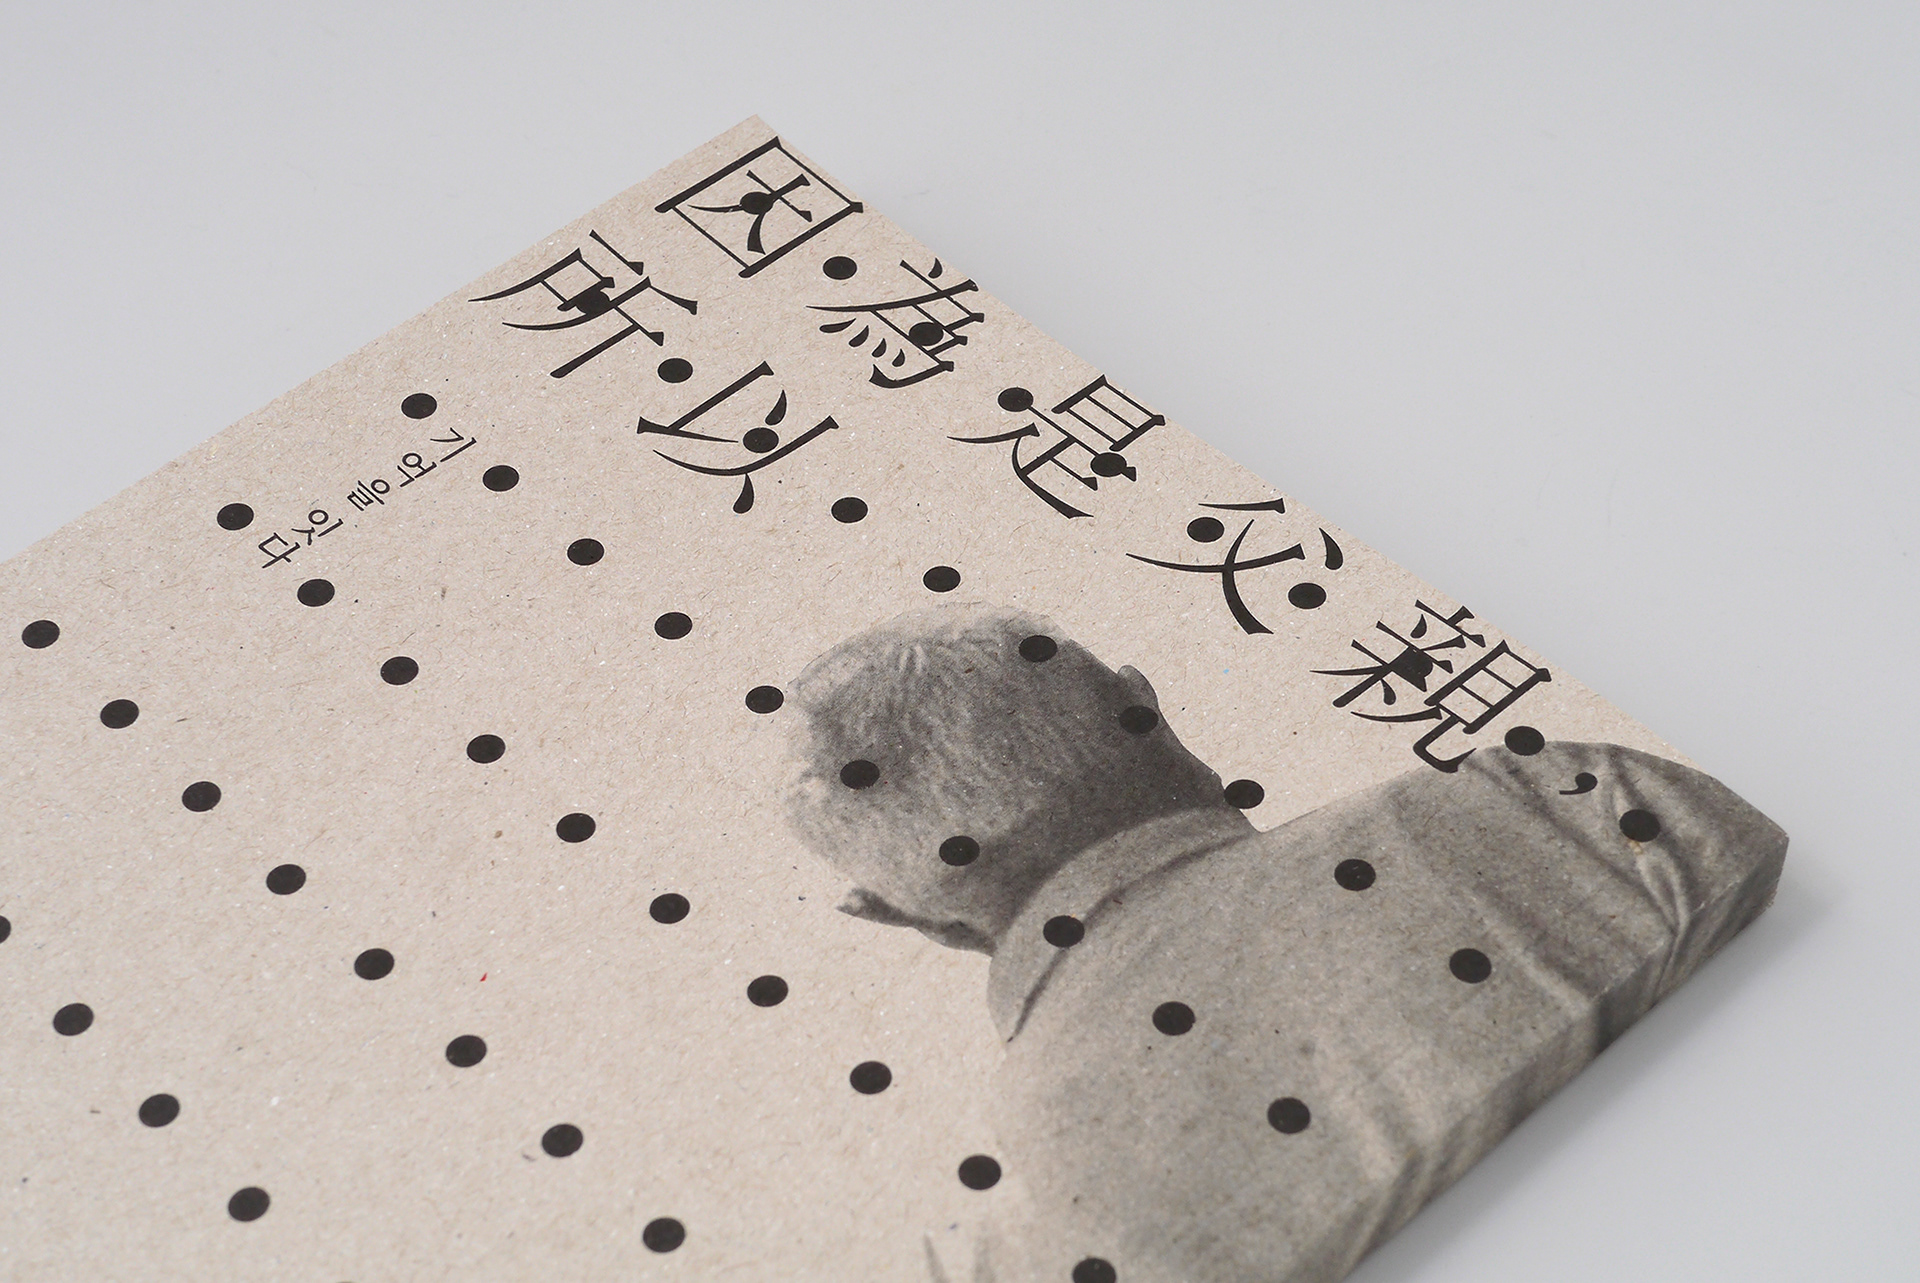 因為是父親，
所以
기억을 잇다